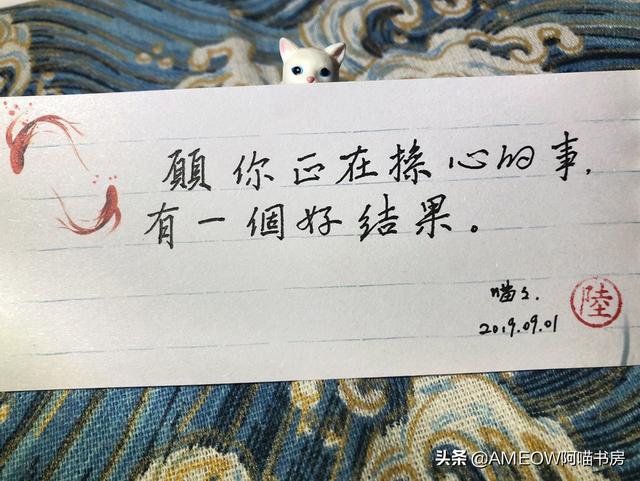 願你正在操心的事,
有一個好结果。
喵々.
2019.09.01
陸
头条 @AMEOW阿喵书房